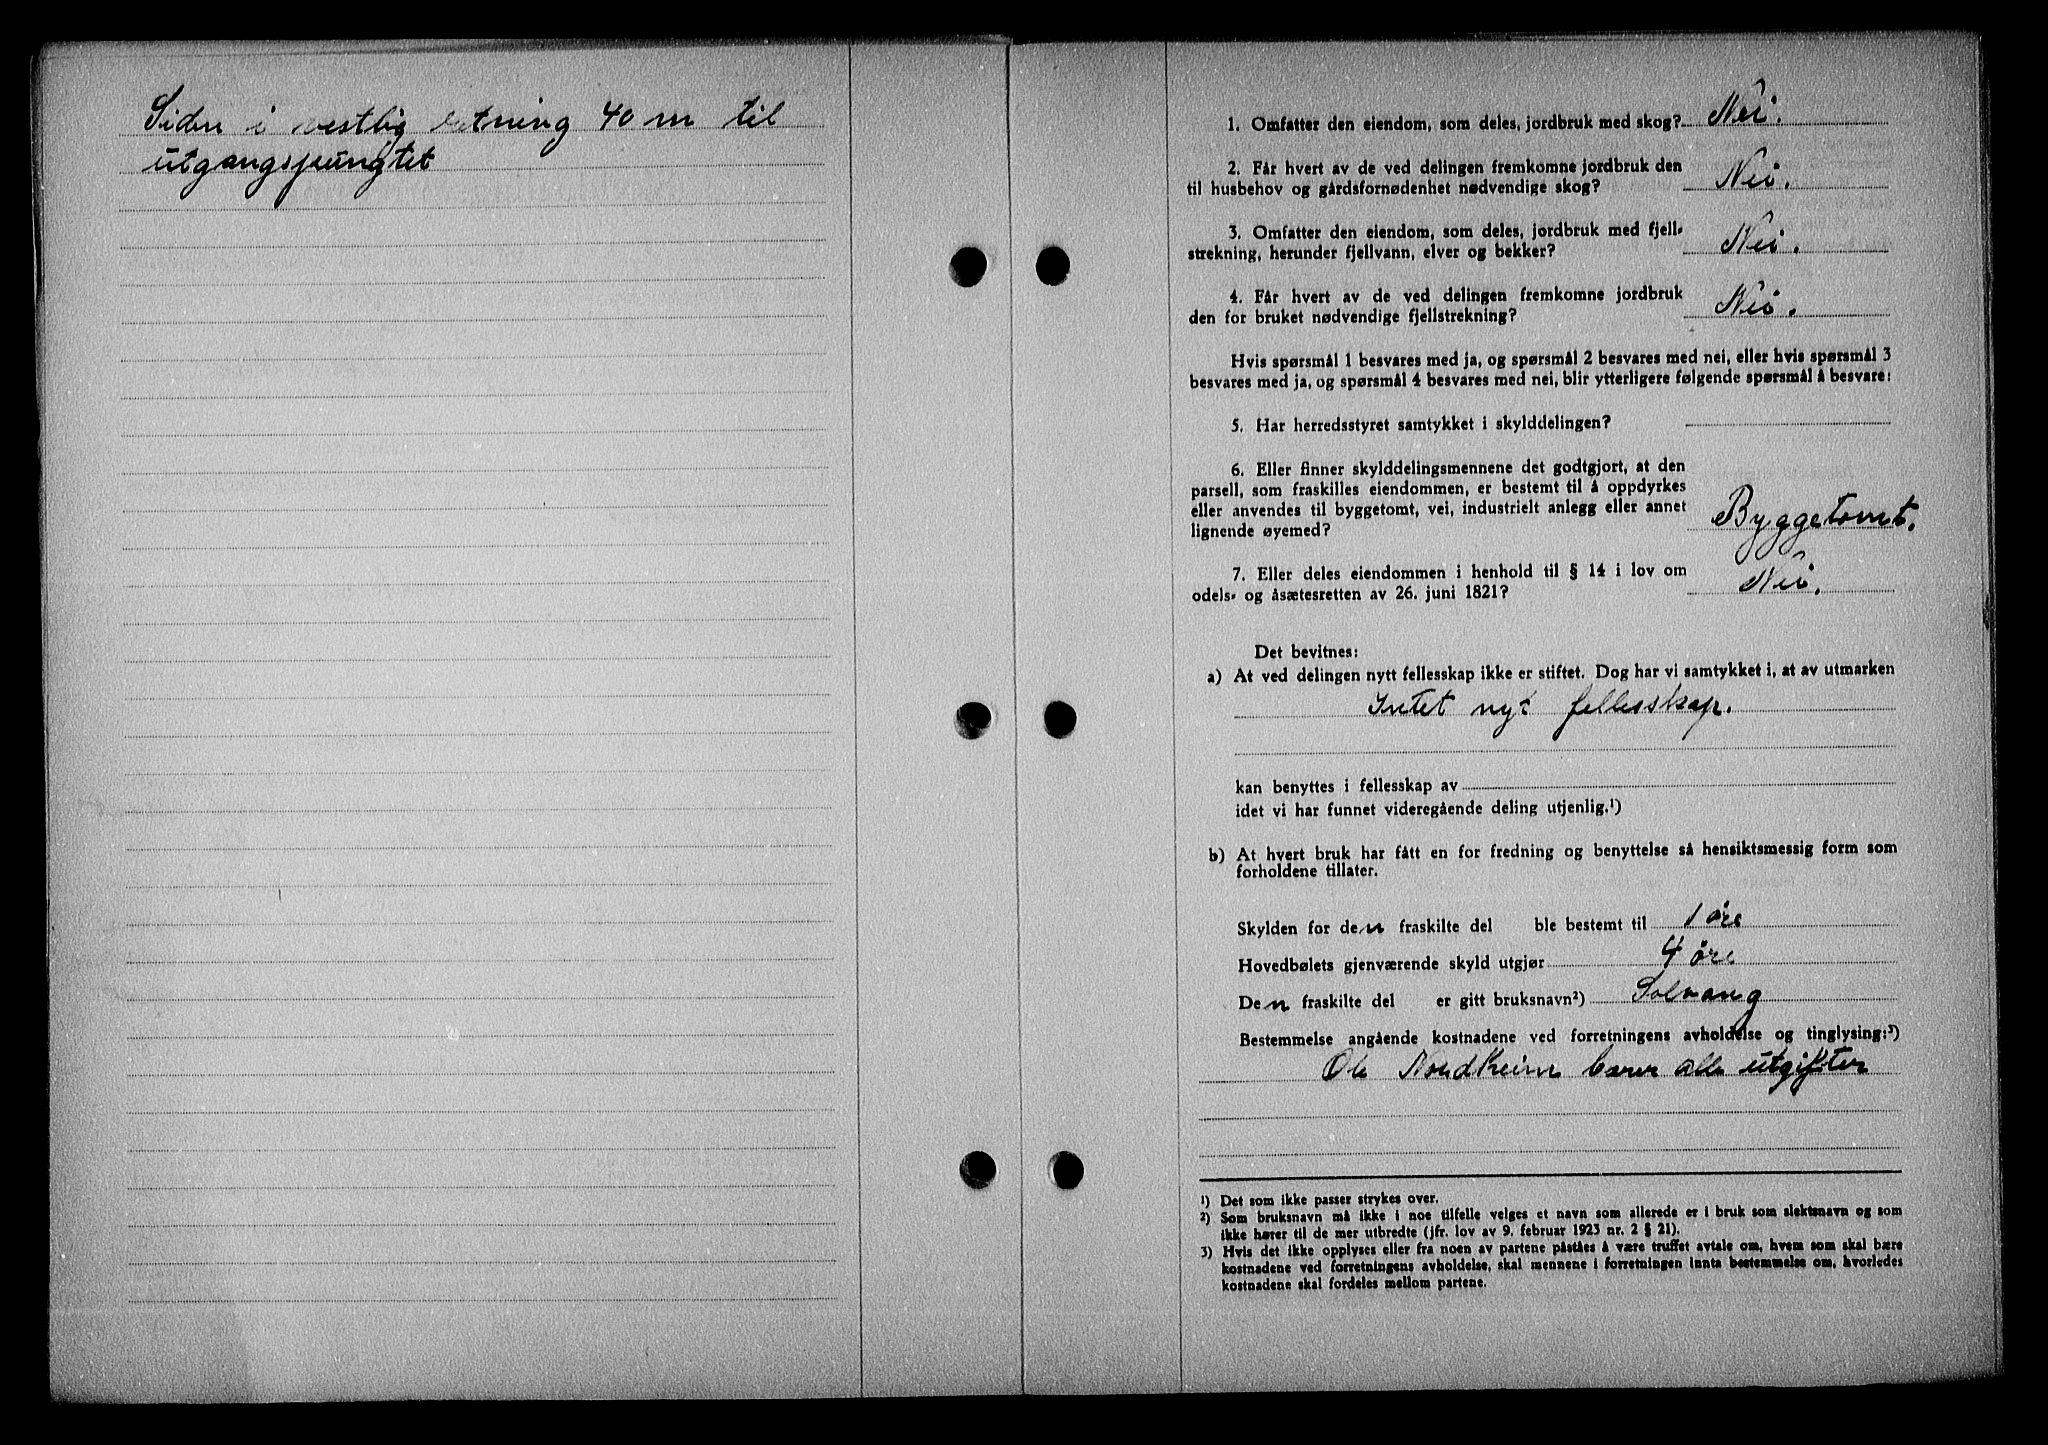 Siden i vestlig retning 40 m til
utgangspungtet
1. Omfatter den eiendom, som deles, jordbruk med skog? Nei.
2. Får hvert av de ved delingen fremkomne jordbruk den
til husbehov og gårdsfornødenhet nødvendige skog? Nei.
3. Omfatter den eiendom, som deles, jordbruk med fjell-
strekning, herunder fjellvann, elver og bekker? Nei.
4. Får hvert av de ved delingen fremkomne jordbruk
den for bruket nødvendige fjellstrekning? Nei.
Hvis spørsmål 1 besvares med ja, og spørsmål 2 besvares med nei, eller hvis spørsmål 3
besvares med ja, og spørsmål 4 besvares med nei, blir ytterligere følgende spørsmål å besvare:
5. Har herredsstyret samtykket i skylddelingen?
6. Eller finner skylddelingsmennene det godtgjort, at den
parsell, som fraskilles eiendommen, er bestemt til å oppdyrkes
eller anvendes til byggetomt, vei, industrielt anlegg eller annet
lignende øyemed? Byggetomt.
7. Eller deles eiendommen i henhold til § 14 i lov om
odels- og åsætesretten av 26. juni 1821? Nei.
Det bevitnes:
a) At ved delingen nytt fellesskap ikke er stiftet. Dog har vi samtykket i, at av utmarken
Intet nyt fellesskap.
kan benyttes i fellesskap av
idet vi har funnet videregående deling utjenlig.¹)
b) At hvert bruk har fått en for fredning og benyttelse så hensiktsmessig form som
forholdene tillater.
Skylden for den fraskilte del ble bestemt til 1 øre
Hovedbølets gjenværende skyld utgjør 4 øre
Den fraskilte del er gitt bruksnavn²) Solvang
Bestemmelse angående kostnadene ved forretningens avholdelse og tinglysing:³)
Ole Nordheim bærer alle utgifter
¹) Det som ikke passer strykes over.
²) Som bruksnavn må ikke i noe tilfelle velges et navn som allerede er i bruk som slektsnavn og som
ikke hører til de mer utbredte (jfr. lov av 9. februar 1923 nr. 2 § 21).
3) Hvis det ikke opplyses eller fra noen av partene påståes å være truffet avtale om, hvem som skal bære
kostnadene ved forretningens avholdelse, skal mennene i forretningen innta bestemmelse om, hvorledes
kostnadene skal fordeles mellom partene.